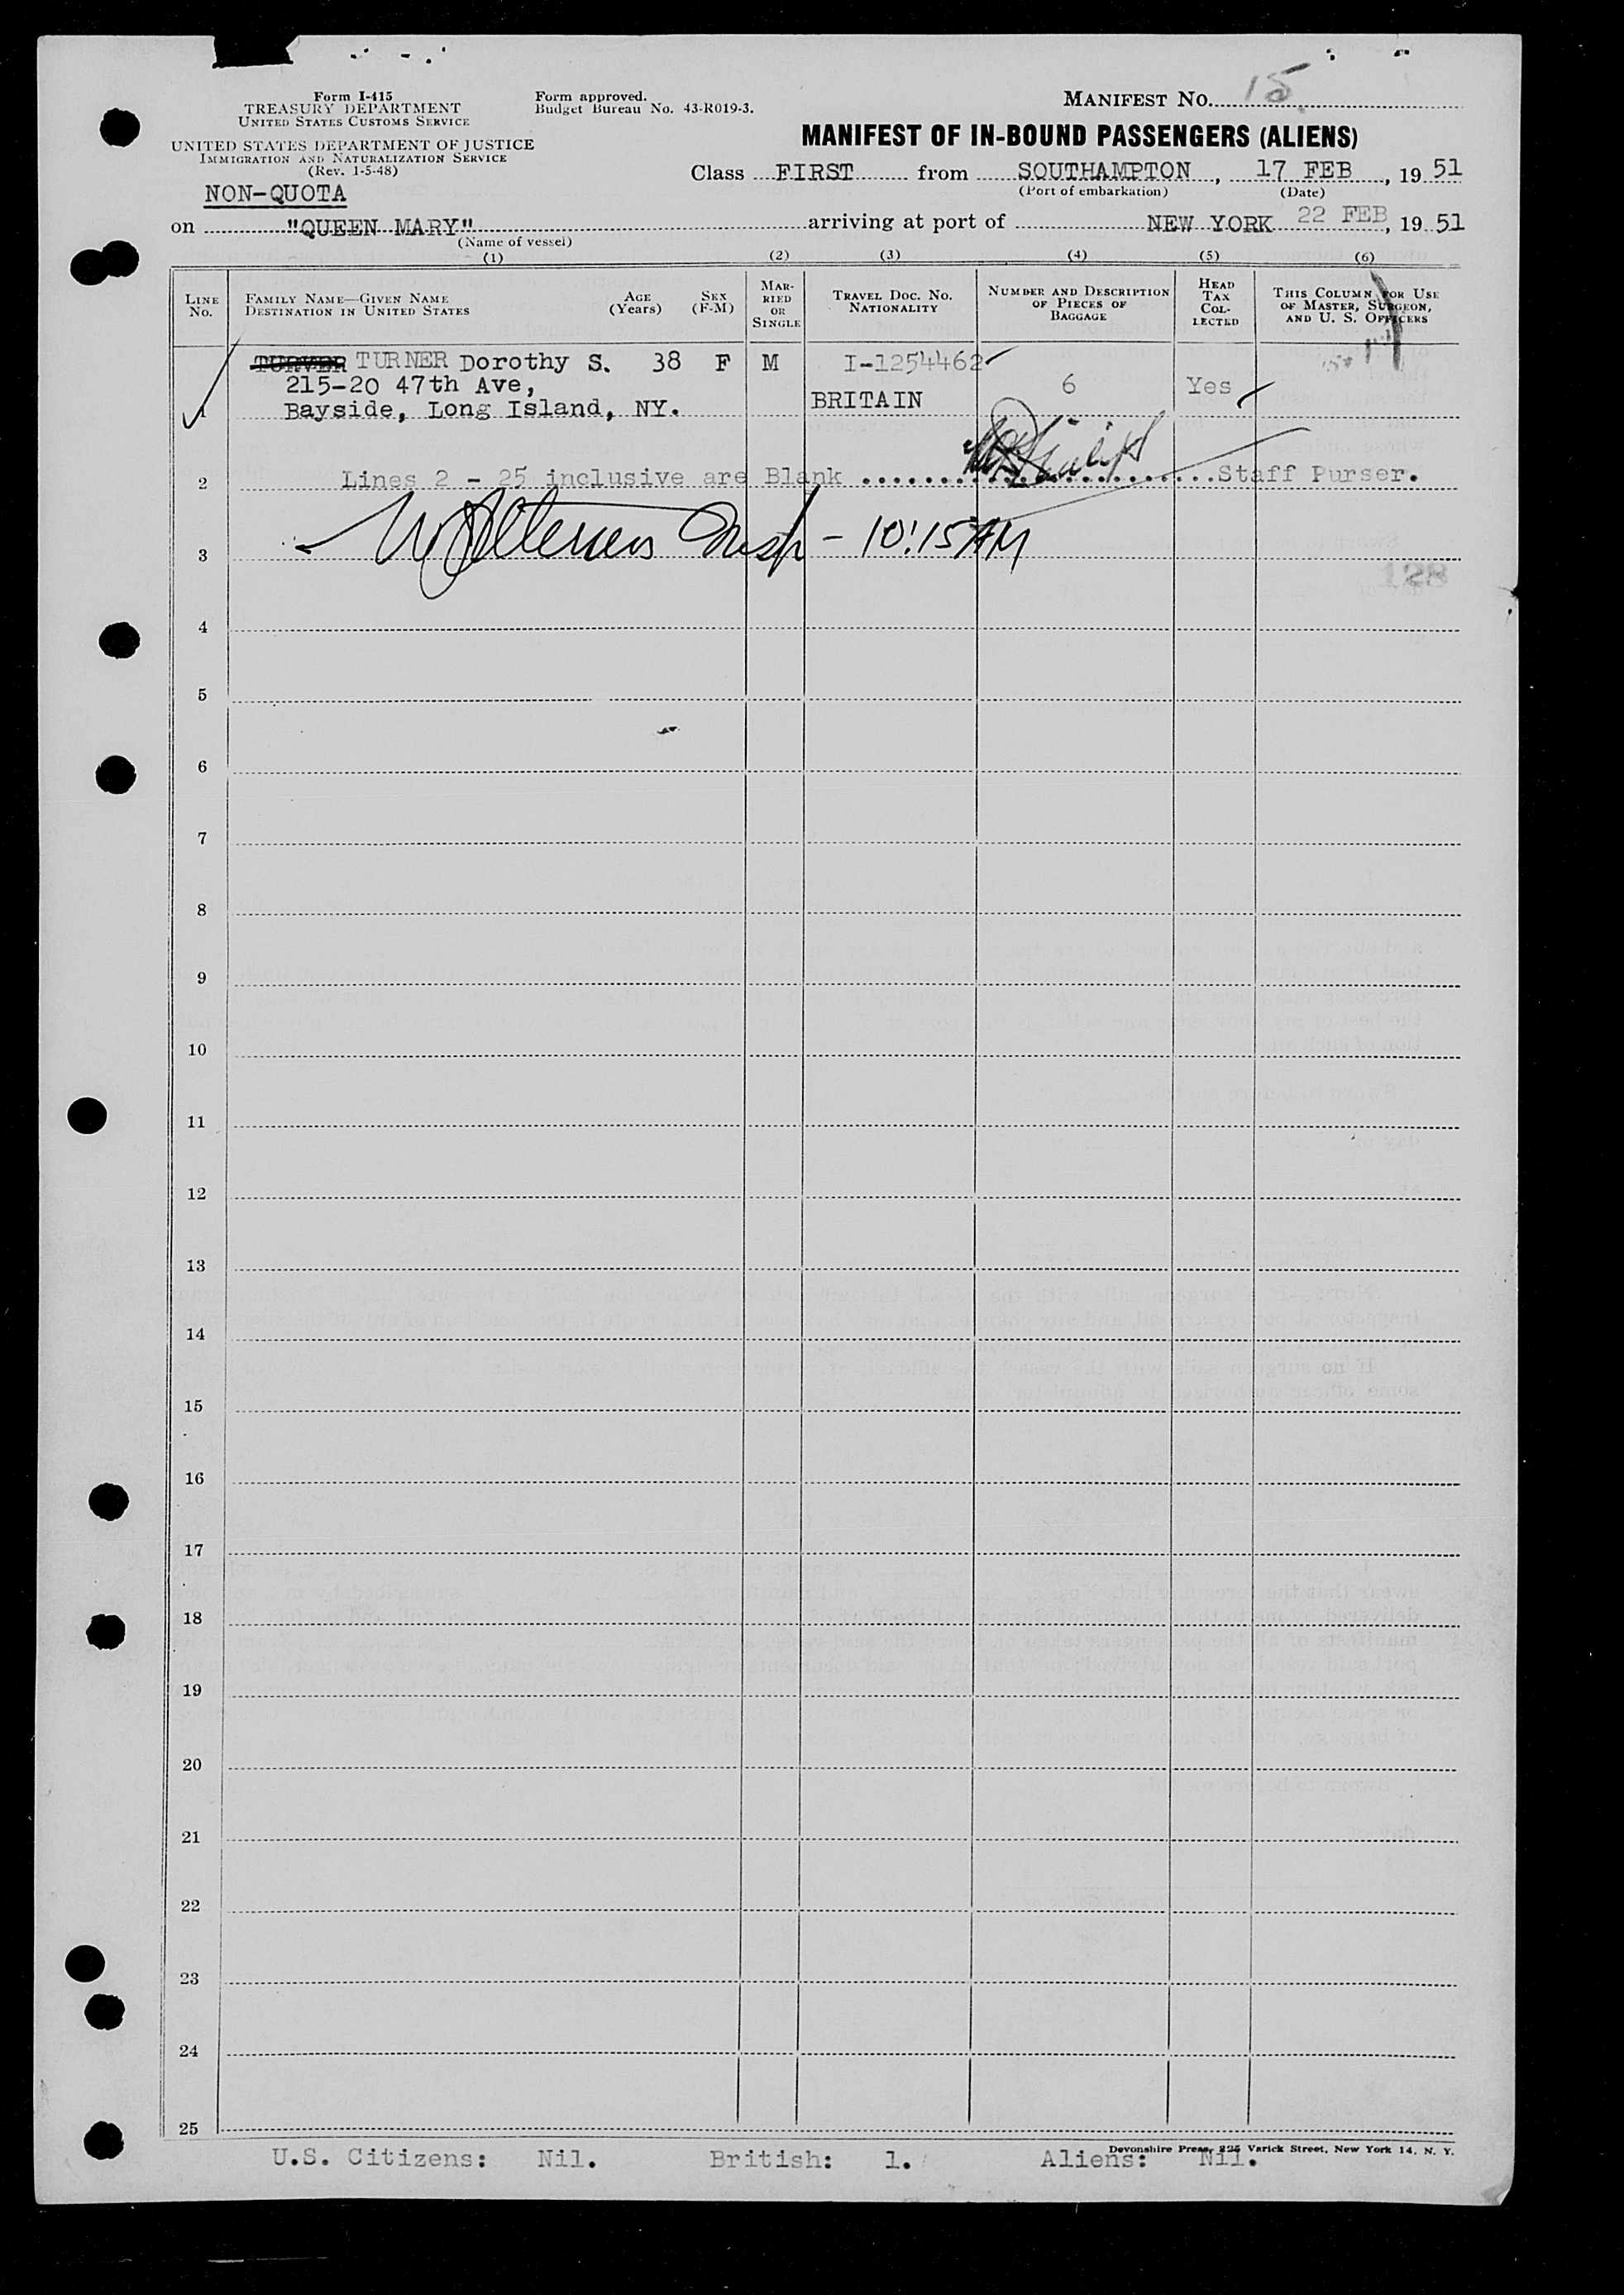 Form I-415
TREASURY DEPARTMENT
UNITED STATES CUSTOMS SERVICE
UNITED STATES DEPARTMENT OF JUSTICE
IMMIGRATION AND NATURALIZATION SERVICE
(Rev. 1-5-48)
Form approved.
Budget Bureau No. 43-R019-3.
MANIFEST NO. 15
MANIFEST OF IN-BOUND PASSENGERS (ALIENS)
Class FIRST from SOUTHAMPTON, 17 FEB, 19 51
(Port of embarkation) (Date)
NON-QUOTA
on "QUEEN MARY" arriving at port of NEW YORK 22 FEB, 19 51
(Name of vessel)
(1) (2) (3) (4) (5) (6)
LINE No.
FAMILY NAME—GIVEN NAME
DESTINATION IN UNITED STATES
AGE (Years)
SEX (F-M)
MARRIED OR SINGLE
TRAVEL DOC. NO.
NATIONALITY
NUMBER AND DESCRIPTION OF PIECES OF BAGGAGE
HEAD TAX COLLECTED
THIS COLUMN FOR USE OF MASTER, SURGEON, AND U. S. OFFICERS
1 TURNER Dorothy S. 38 F M I-1254462 6 Yes
215-20 47th Ave,
Bayside, Long Island, NY. BRITAIN
2 Lines 2 - 25 inclusive are Blank ........ Staff Purser.
3 Insp - 10:15 AM
128
4
5
6
7
8
9
10
11
12
13
14
15
16
17
18
19
20
21
22
23
24
25
Devonshire Press, 225 Varick Street, New York 14, N. Y.
U.S. Citizens: Nil. British: 1. Aliens: Nil.